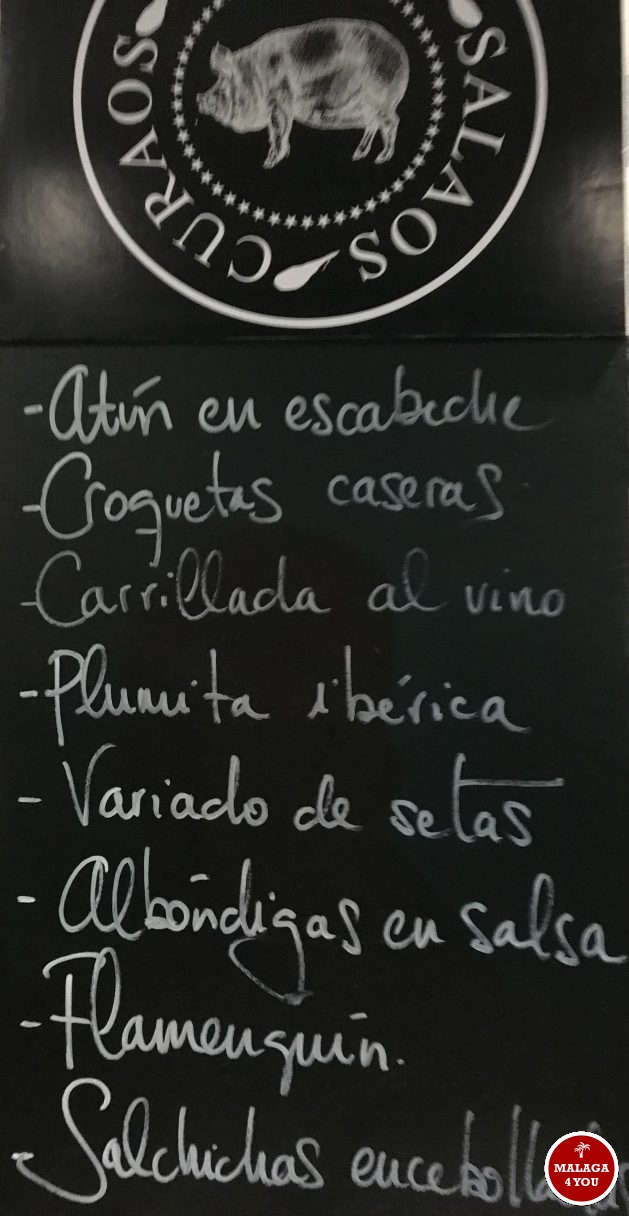 CURAOS SALAOS
-Atún en escabeche
-Croquetas caseras
-Carrillada al vino
-Plumita ibérica
- Variado de setas
- Albóndigas en salsa
-Flamenquín.
-Salchichas
MALAGA
4 YOU